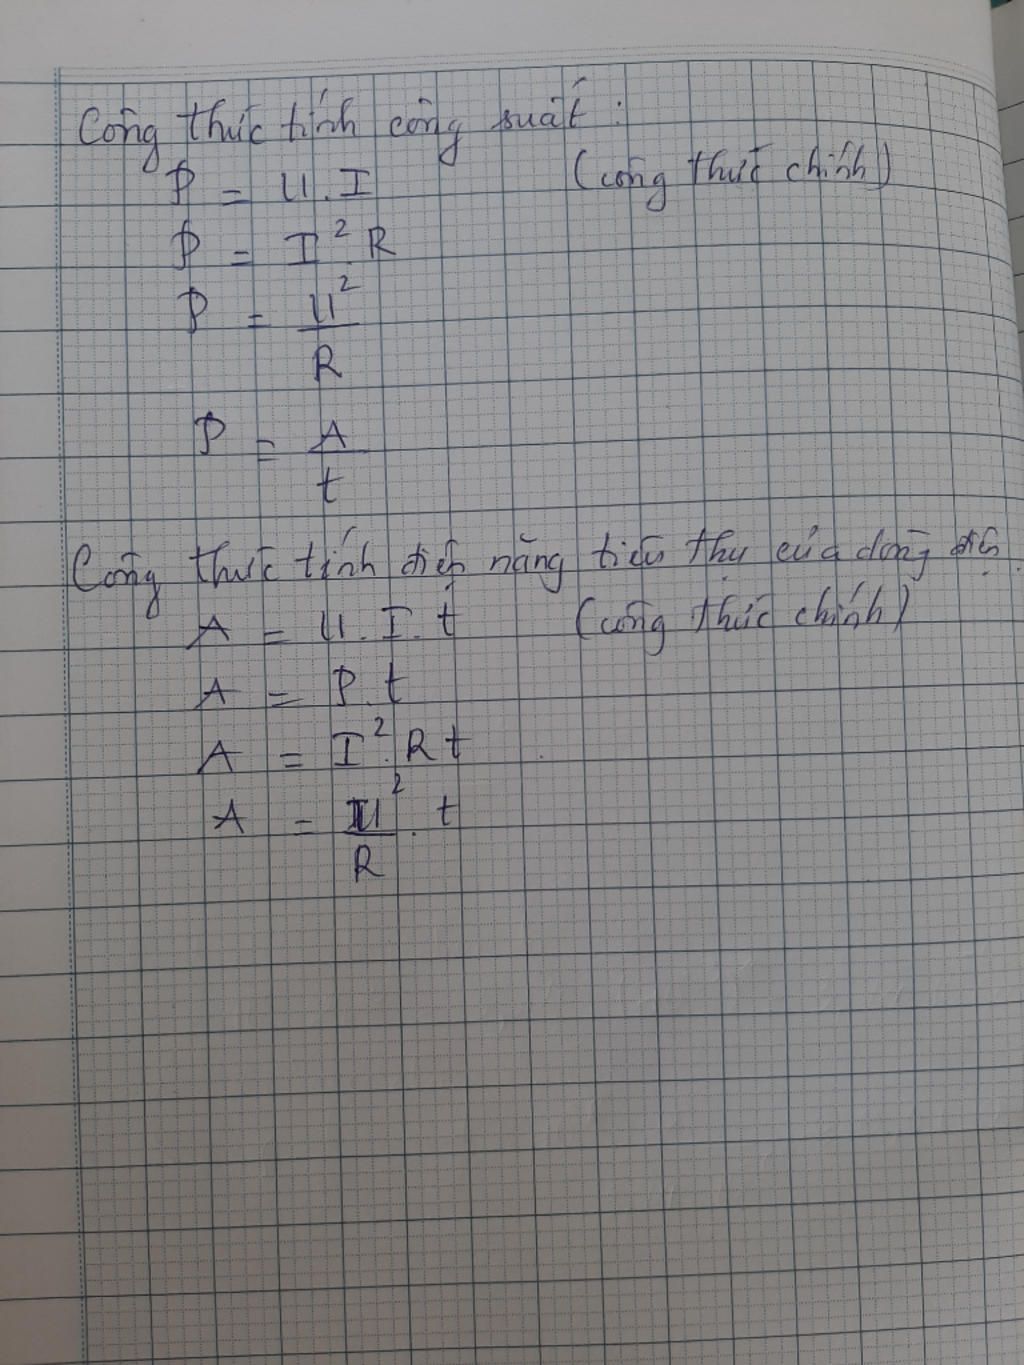 Công thức tính công suất :
P = U.I (công thức chính)
P = I².R
P = U²/R
P = A/t
Công thức tính điện năng tiêu thụ của dòng điện.
A = U.I.t (công thức chính)
A = P.t
A = I².Rt
A = U²/R . t